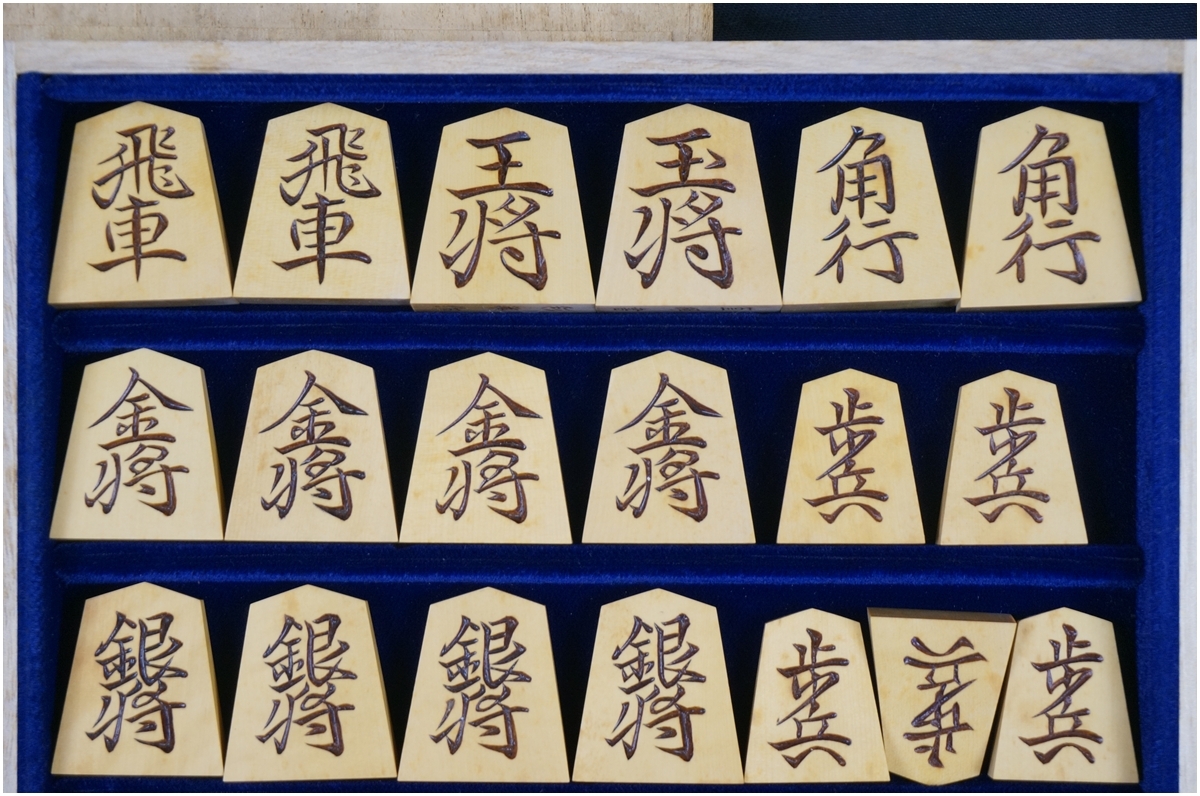 飛車 飛車 王将 玉将 角行 角行
金将 金将 金将 金将 歩兵 歩兵
銀将 銀将 銀将 銀将 歩兵 歩兵 歩兵